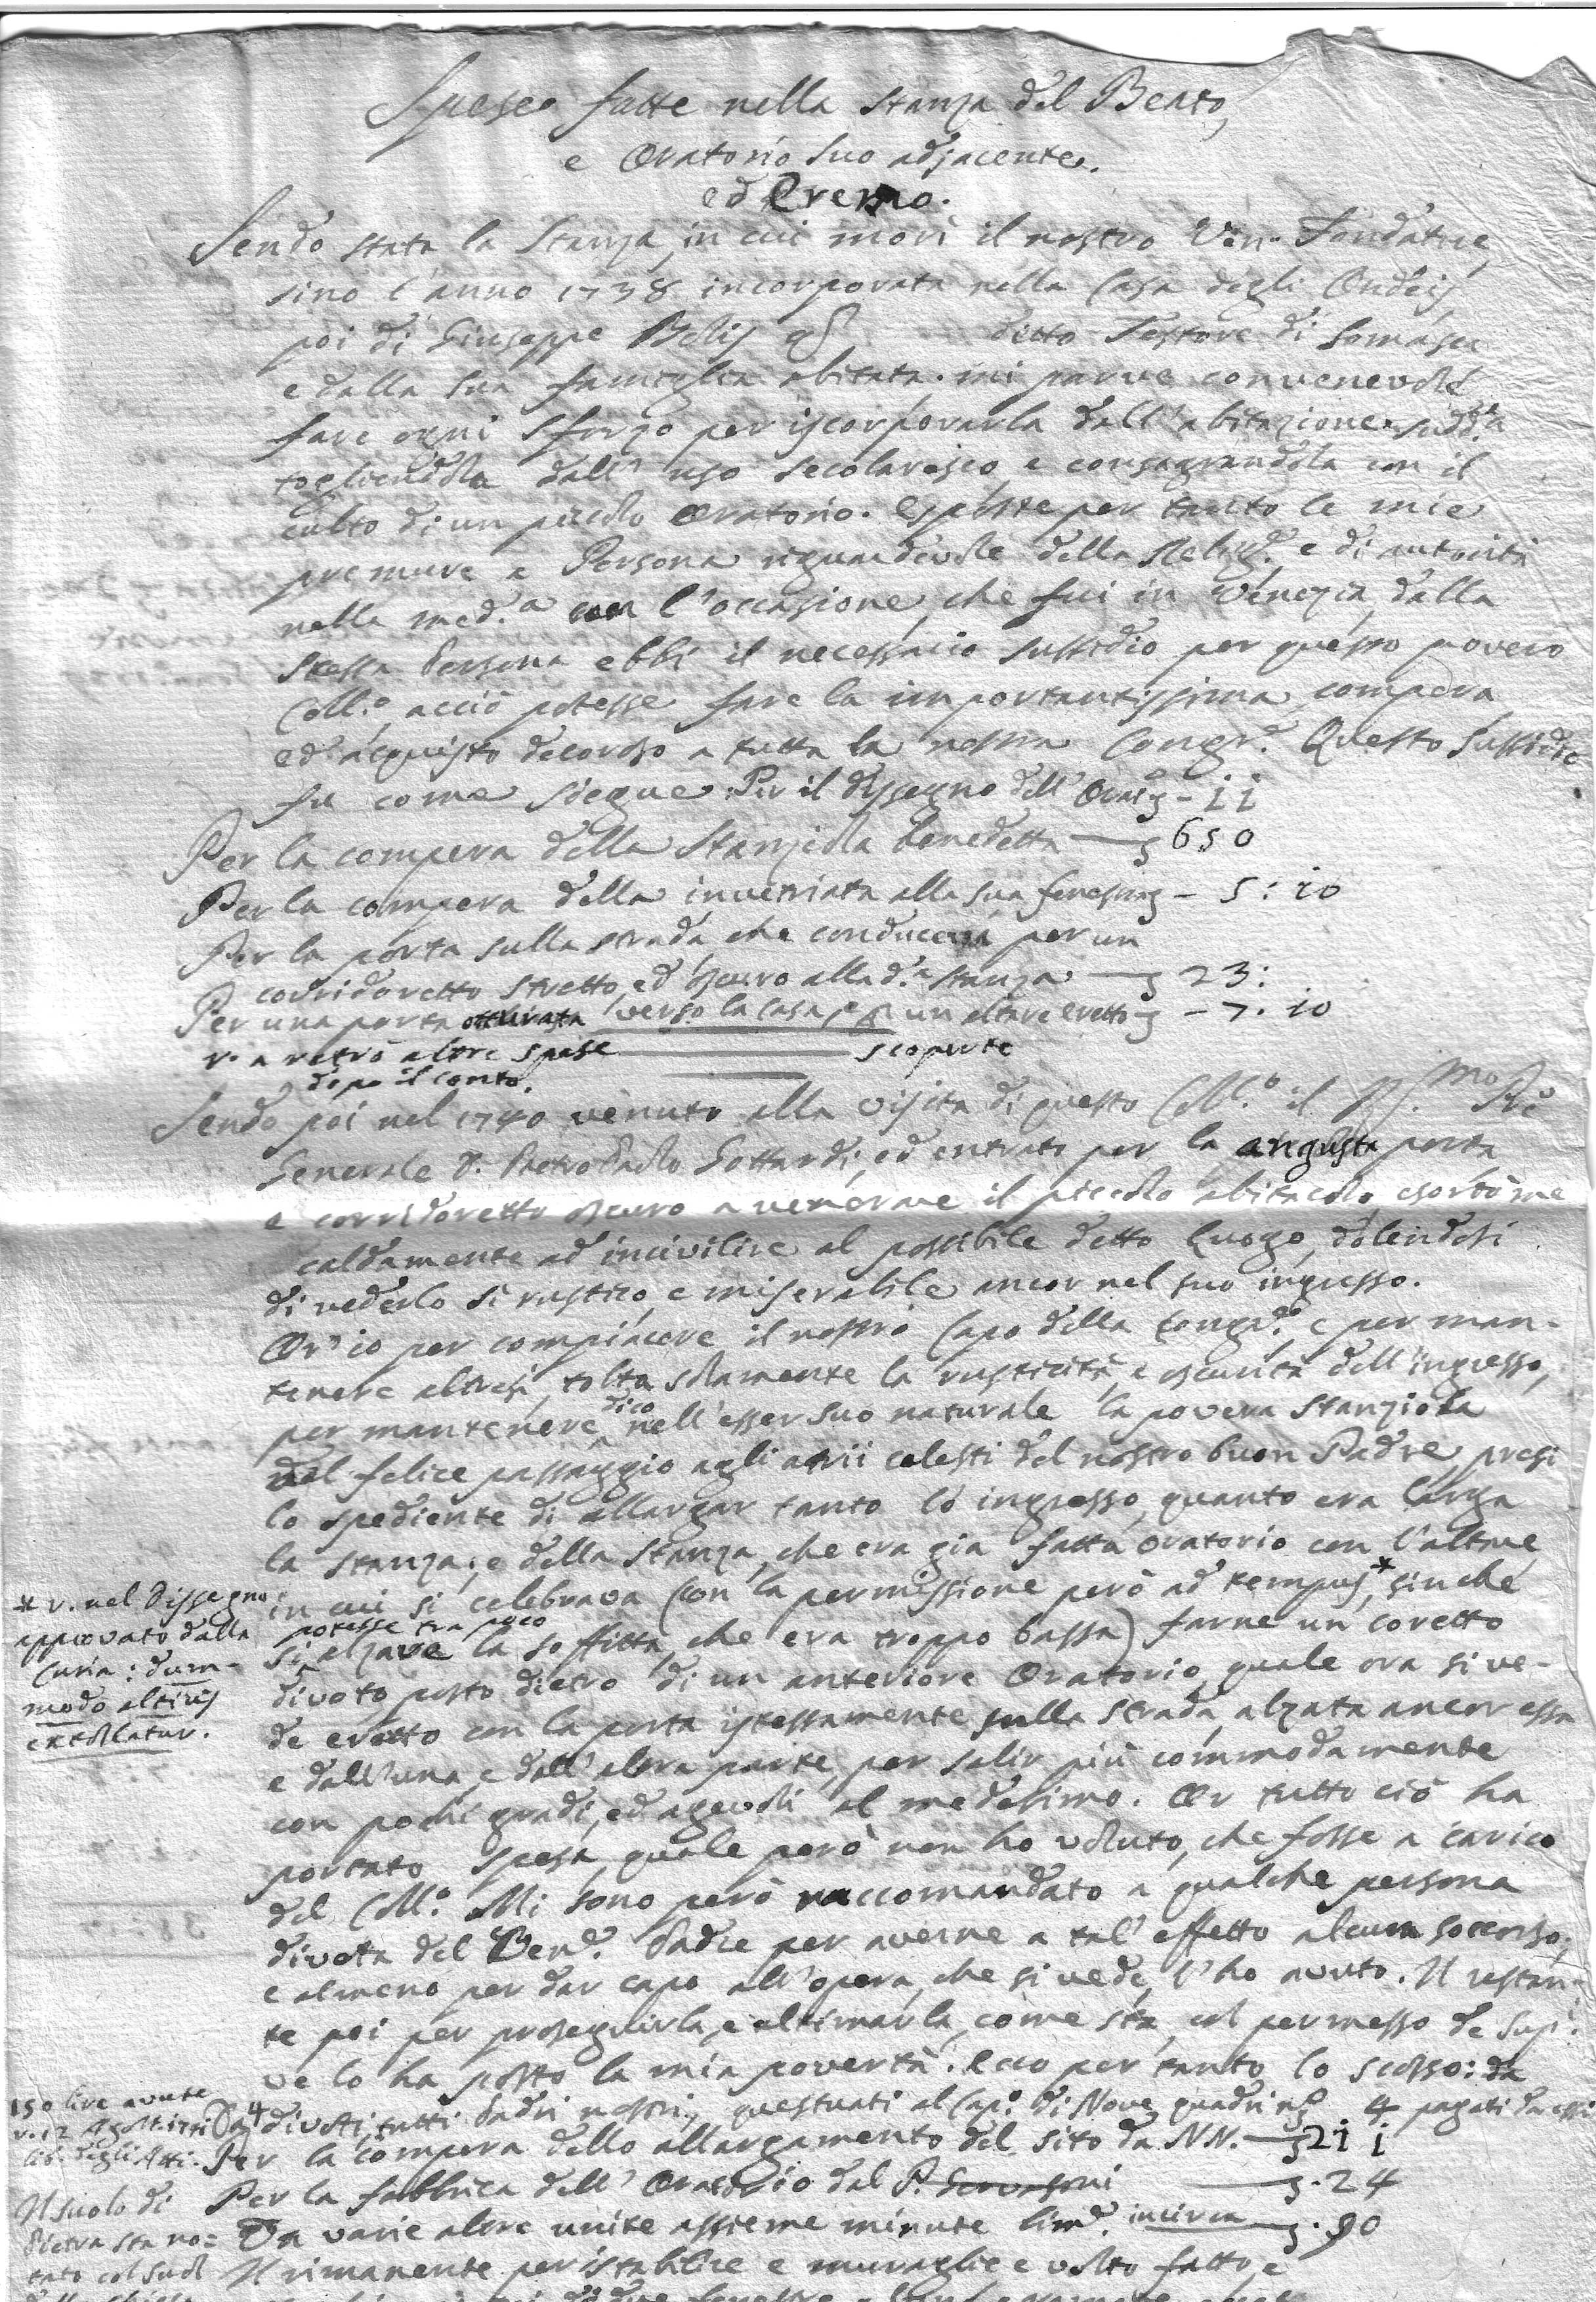 Spese fatte nella stanza del Beato,
e Oratorio suo adjacente.
ed Eremo.
Sendo stata la Stanza, in cui morì il nostro Ven. Fondatore,
sino l'anno 1738 incorporata nella Casa degli Ondeis,
poi di Giuseppe Bolis detto Testore di Somasca
e dalla sua famiglia abitata. mi parve convenevole
fare ogni sforzo per iscorporarla dall'abitazione sudd.ta
togliendola dall'uso secolaresco, e consagrandola con il
culto di un piccolo Oratorio. Esposte per tanto le mie
premure a Persona riguardevole della Relig.e, e di autorità
nella med.a con l'occasione, che fui in Venezia, dalla
stessa Persona ebbi il necessario sussidio per questo povero
Coll.o, acciò potesse fare la importantissima compera,
ed acquisto decoroso a tutta la nostra Congr.e Questo sussidio
fu come siegue: Per il dissegno dell'Orat. - 11
Per la compera della Stanziola benedetta — 650
Per la compera della invetriata alla sua fenestra - 5: 10
Per la porta sulla strada, che conduceva per un
corridoretto stretto, ed oscuro alla d.a stanza — 23:
Per una porta otturata verso la casa, e p un altare eretto - 7. 10
v. a retro altre spese scoperte
dopo il conto.
Sendo poi nel 1740 venuto alla visita di questo Coll.o il Rev.mo Pre
Generale D. Pietro Paolo Gottardi, ed entrato per la angusta porta
e corridoretto oscuro a venerare il piccolo abitacolo, esortòme
caldamente ad incivilire al possibile detto luogo, dolendosi
di vederlo sì rustico, e miserabile ancor nel suo ingresso.
Or'io per compiacere il nostro Capo della Congr.e, e per man-
tenere altresì, tolta solamente la rusticità, e oscurità dell'ingresso,
per mantenere dico nell'esser suo naturale la povera stanziola
del felice passaggio agli atrii celesti del nostro buon Padre, presi
lo spediente di allargar tanto lo ingresso, quanto era larga
la stanza; e della stanza, che era gia fatta oratorio con l'altare,
in cui si celebrava (con la permissione però ad tempus,* sinchè
potesse tra poco
si alzare la soffitta, che era troppo bassa) farne un coretto
divoto posto dietro di un anteriore Oratorio, quale ora si ve-
de eretto con la porta istessamente sulla strada, alzata ancor essa
e dall'una, e dall'altra parte, per salir più commodamente
con pochi gradi, ed agevoli al medesimo. Or tutto ciò ha
portato spesa, quale però non ho voluto, che fosse a carico
del Coll.o Mi sono però raccomandato a qualche persona
divota del Ven.e Padre per averne a tal'effetto alcun soccorso,
e almeno per dar capo all'opera, che si vede, l'ho avuto. Il restan-
te poi per proseguirla, e ultimarla, come sta, col permesso de Sup.i
ve lo ha posto la mia povertà. Ecco per tanto lo scosso: da
Da 4 divoti, tutti Padri nostri, questuati al Cap.o di Nove quadri n.o 4 pagati da essi
Per la compera dello allargamento del sito da NN. — 211
Per la fabbrica dell'Oratorio dal P. Gervasoni — 24
Da varie altre unite assieme minute lim.e incirca — 90
Il rimanente per istabilire e muraglie e volto fatto, e
* v. nel Dissegno
approvato dalla
Curia: dum-
modo altius
extollatur.
150 lire avute
v. 12 Ag.
lib. degli Atti.
Il suolo di
Pietra sta no=
tato col suol
della chiesa